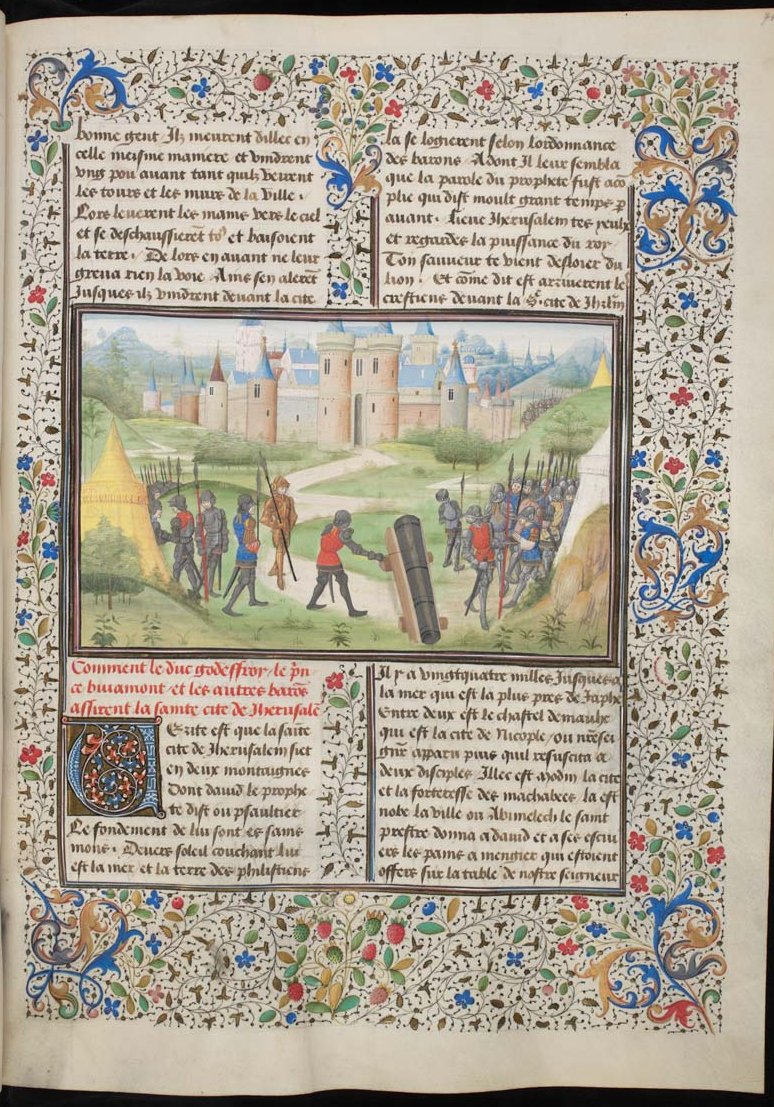 bonne gent Ilz meurent dillec en
celle meisme maniere et vindrent
vng pou auant tant quilz veirent
les tours et les murs de la ville .
Lors leuerent les mains vers le ciel
et se deschaussierēt to⁹ et baisoient
la terre . De lors en auant ne leur
greua rien la voie Ains sen alerēt
Jusques ilz vindrent deuant la cite
la se logierent selon lordonnance
des barons . Adont Il leur sembla
que la parole du prophete fust acō
plie qui dist moult grant temps p
auant . Lieue Jherusalem tes yeulx
et regardes la puissance du roy
Ton sauueur te vient desloier du
lien . Et cōme dit est arriuerent le
crestiens deuant la Sᵉ cite de Jhrlm
Comment le duc godeffroy . le pn
ce buiamont . et les autres barōs
assirent la sainte cite de Jherusalē
Verite est que la saīte
cite de Jherusalem siet
en deux montaignes
Dont dauid le prophe
te dist ou psaultier
Le fondement de lui sont es sains
mons . Deuers soleil couchant lui
est la mer et la terre des philistiens
Il y a vingtquatre milles Jusques a
la mer qui est la plus pres de Japhe
Entre deux est le chastel demaulx
qui est la cite de Nicople / ou nr̄e sei
gnr̄ apparu puis quil resuscita a
deux disciples Illec est modin la cite
et la forteresse des machabees la est
nobe la ville ou Abimelech le saint
prestre donna a dauid et a ses escui
ers les pains a mengier qui estoient
offers sur la table de nostre seigneur